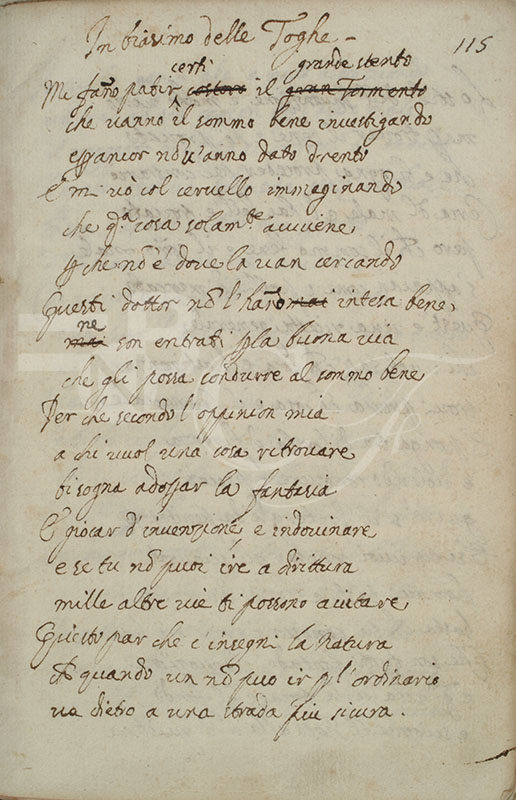 In biasimo delle Toghe
115
certi grande stento
Mi fāno patir costoro il gran Tormento
che vanno il sommo bene investigando
e p ancor nō v'anno dato drento
E mi vò col cervello immaginando
che q.ᵃ cosa solam.ᵗᵉ avviene,
p che nō è dove la van cercando
Questi dottor nō l'hāno mai intesa bene,
ne
mai son entrati p la buona via
che gli possa condurre al sommo bene
Per che secondo l'oppinion mia
a chi vuol una cosa ritrovare
bisogna adoprar la fantasia
E giocar d'invenzione, e indovinare
e se tu nō puoi ire a dirittura
mille altre vie ti possono aiutare,
Questo par che c'insegni la Natura
che quando un nō puo ir p l'ordinario
va dietro a una strada piu sicura.